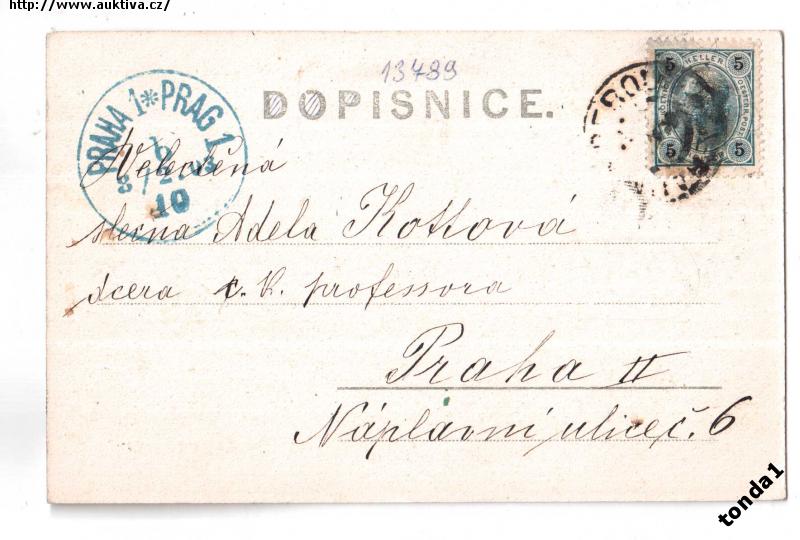 http://www.auktiva.cz/
13489
DOPISNICE.
5 HELLER 5
5 5
PRAHA 1 * PRAG 1
10
Velectěná
slečna Adela Kottová
dcera c. k. professora
Praha II
Náplavní ulice č. 6
tonda1